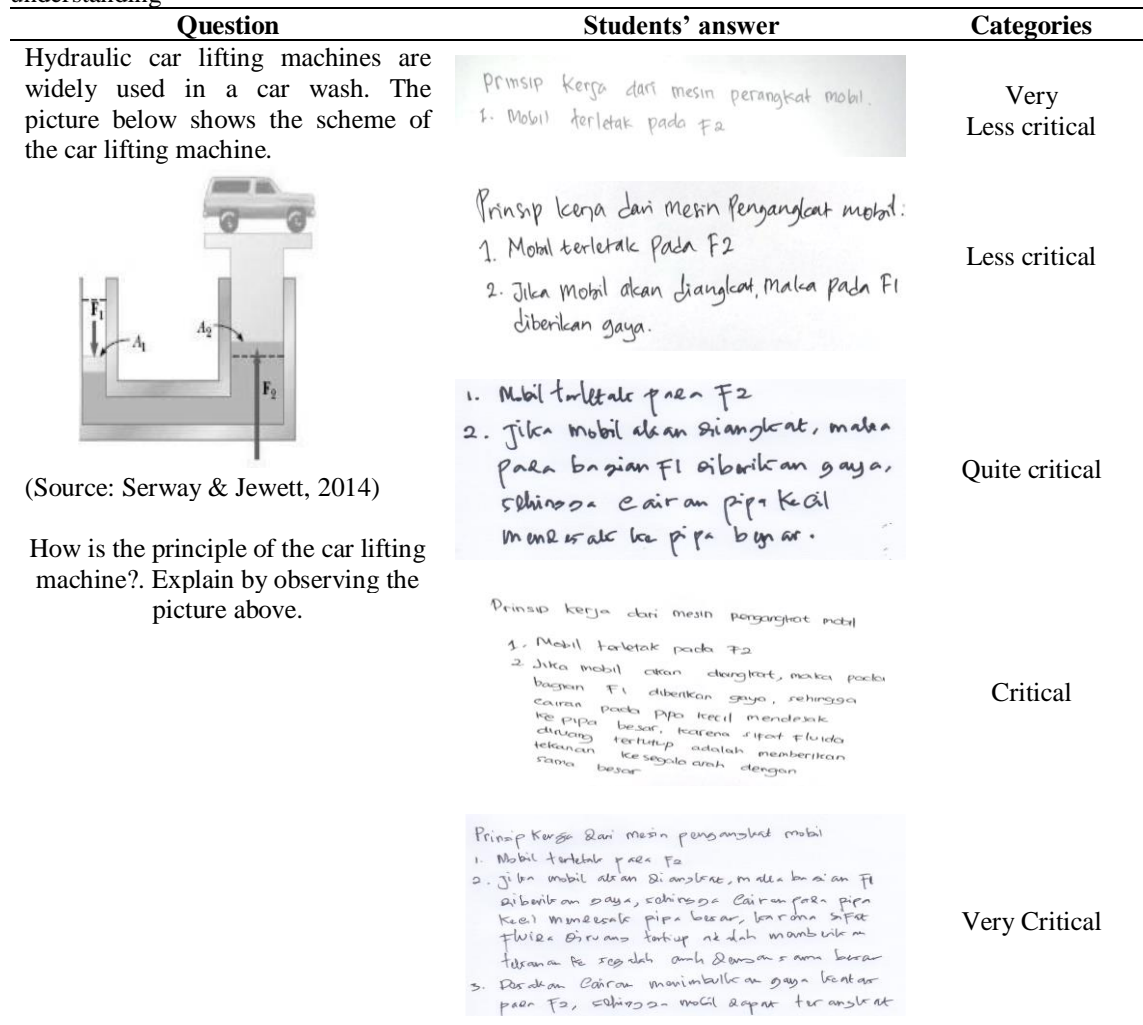 understanding
Question Students' answer Categories
Hydraulic car lifting machines are
widely used in a car wash. The
picture below shows the scheme of
the car lifting machine.
F₁
A₁
A₂
F₂
(Source: Serway & Jewett, 2014)
How is the principle of the car lifting
machine?. Explain by observing the
picture above.
Prinsip Kerja dari mesin perangkat mobil.
1. Mobil terletak pada F2
Very
Less critical
Prinsip kerja dari mesin Pengangkat mobil:
1. Mobil terletak Pada F2
2. Jika Mobil akan diangkat, Maka pada F1
diberikan gaya.
Less critical
1. Mobil terletak pada F2
2. Jika mobil akan diangkat, maka
pada bagian F1 diberikan gaya,
sehingga cairan pipa kecil
mendesak ke pipa besar.
Quite critical
Prinsip kerja dari mesin pengangkat mobil
1. Mobil terletak pada F2
2 Jika mobil akan diangkat, maka pada
bagian F1 diberikan gaya, sehingga
cairan pada pipa kecil mendesak
ke pipa besar, karena sifat fluida
diruang tertutup adalah memberikan
tekanan kesegala arah dengan
sama besar
Critical
Prinsip Kerja dari mesin pengangkat mobil
1. Mobil terletak pada F2
2. Jika mobil akan diangkat, maka bagian F1
diberikan gaya, sehingga cairan pada pipa
kecil mendesak pipa besar, karena sifat
fluida diruang tertutup adalah memberikan
tekanan ke segalah arah dengan sama besar
3. Desakan Cairan menimbulkan gaya
pada F2, sehingga mobil dapat terangkat
Very Critical